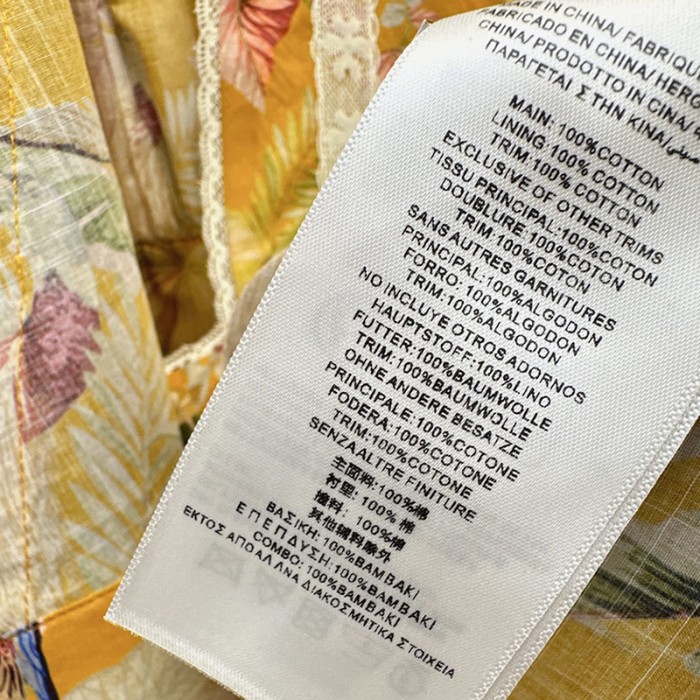 MADE IN CHINA/ FABRIQU
FABRICADO EN CHINA/ HERG
CHINA/ PRODOTTO IN CINA/
ΠΑΡΑΓΕΤΑΙ ΣΤΗΝ ΚΙΝΑ/
MAIN: 100%COTTON
LINING 100% COTTON
TRIM:100% COTTON
EXCLUSIVE OF OTHER TRIMS
TISSU PRINCIPAL:100%COTON
DOUBLURE 100%COTON
TRIM 100%COTON
SANS AUTRES GARNITURES
PRINCIPAL:100%ALGODON
FORRO: 100%ALGODON
TRIM:100%ALGODON
NO INCLUYE OTROS ADORNOS
HAUPTSTOFF:100%LINO
FUTTER:100%BAUMWOLLE
TRIM:100%BAUMWOLLE
OHNE ANDERE BESATZE
PRINCIPALE:100%COTONE
FODERA:100%COTONE
TRIM:100%COTONE
SENZA ALTRE FINITURE
主面料:100%棉
衬里: 100% 棉
撞料: 100%棉
其他辅料除外
ΒΑΣΙΚΗ: 100%BAMBAKI
ΕΠΕΝΔΥΣΗ:100%BAMBAKI
COMBO: 100%BAMBAKI
ΕΚΤΟΣ ΑΠΟ ΑΛΛΝΑ ΔΙΑΚΟΣΜΗΤΙΚΑ ΣΤΟΙΧΕΙΑ